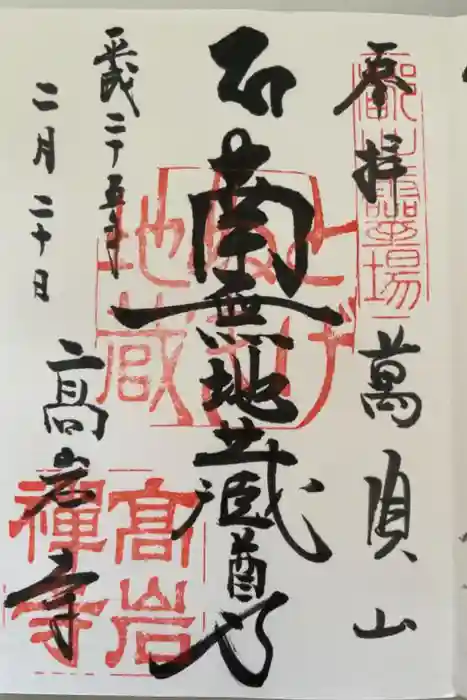 奉拝 萬頂山
南無地蔵尊
平成二十五年
二月二十日
高岩寺
とげ
ぬき
地蔵
高岩
禅寺
霊場